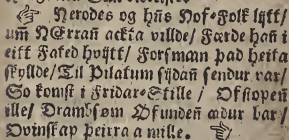 ☞ Herodes og hn̄s Hof-Folk lijtt/
um̄ HErran ackta villde/ Færde han i
eitt Fated hvijtt/ Forsman pad heita
skyllde/ Til Pilatum sijdan sendur var/
So komst i Fridar-Stille/ Ofstopen̄
ille/ Drambsøm Øfunden̄ ædur bar/
Ovinskap þeirra a mille. ☜